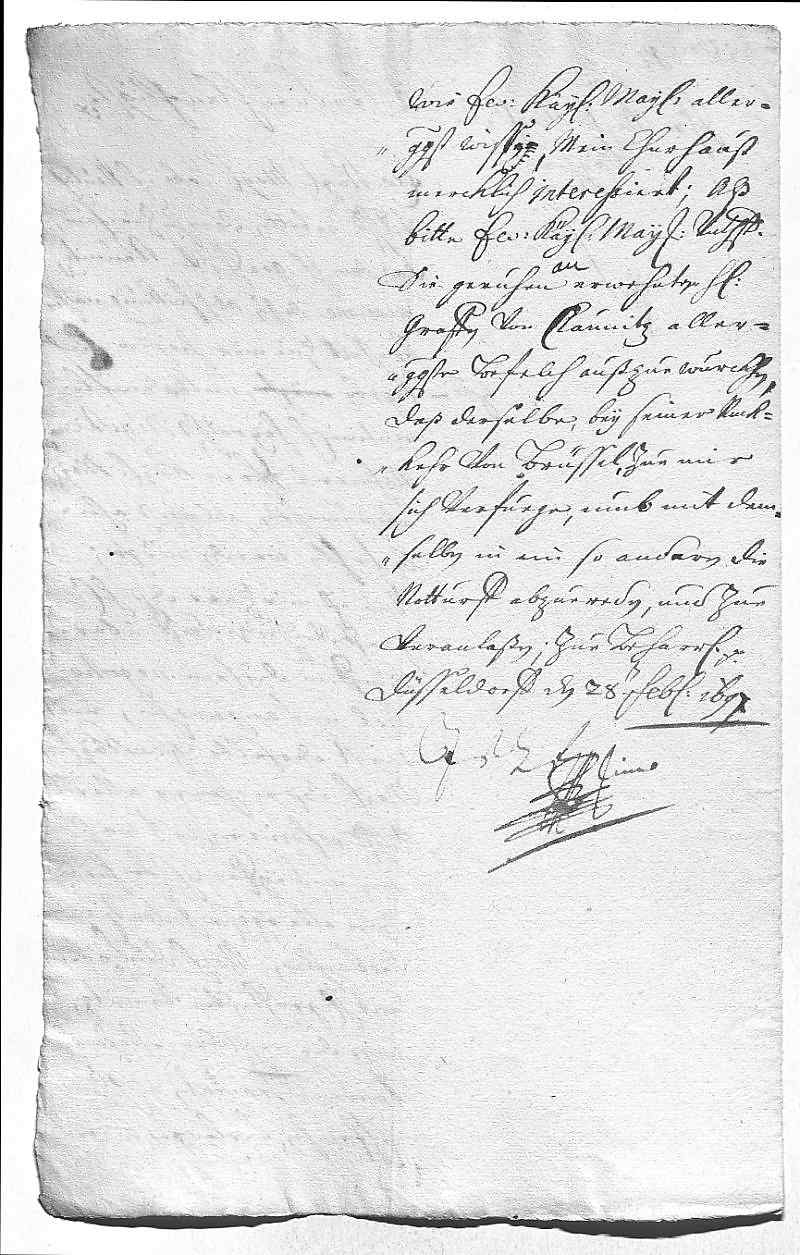 wie Ew: Kayſ. Mayſ. aller=
ggſt wiſſen, Mein Churhauß
mercklich interessiert; Alß
bitte Ew: Kayſ. Mayſ:
Die geruhen an erwehnten H:
Graffen von Caunitz aller=
ggſte Befelch außzuewürcken,
daß derſelbe, bey ſeiner Ruck=
kehr von Brüſſel, zue mir
ſich verfuege, umb mit dem=
ſelben ein und andern die
Notturfft abzuereden, und zue
veranlaßen; zue beharrl. p.
Düſſeldorff den 28 Febr: 1697